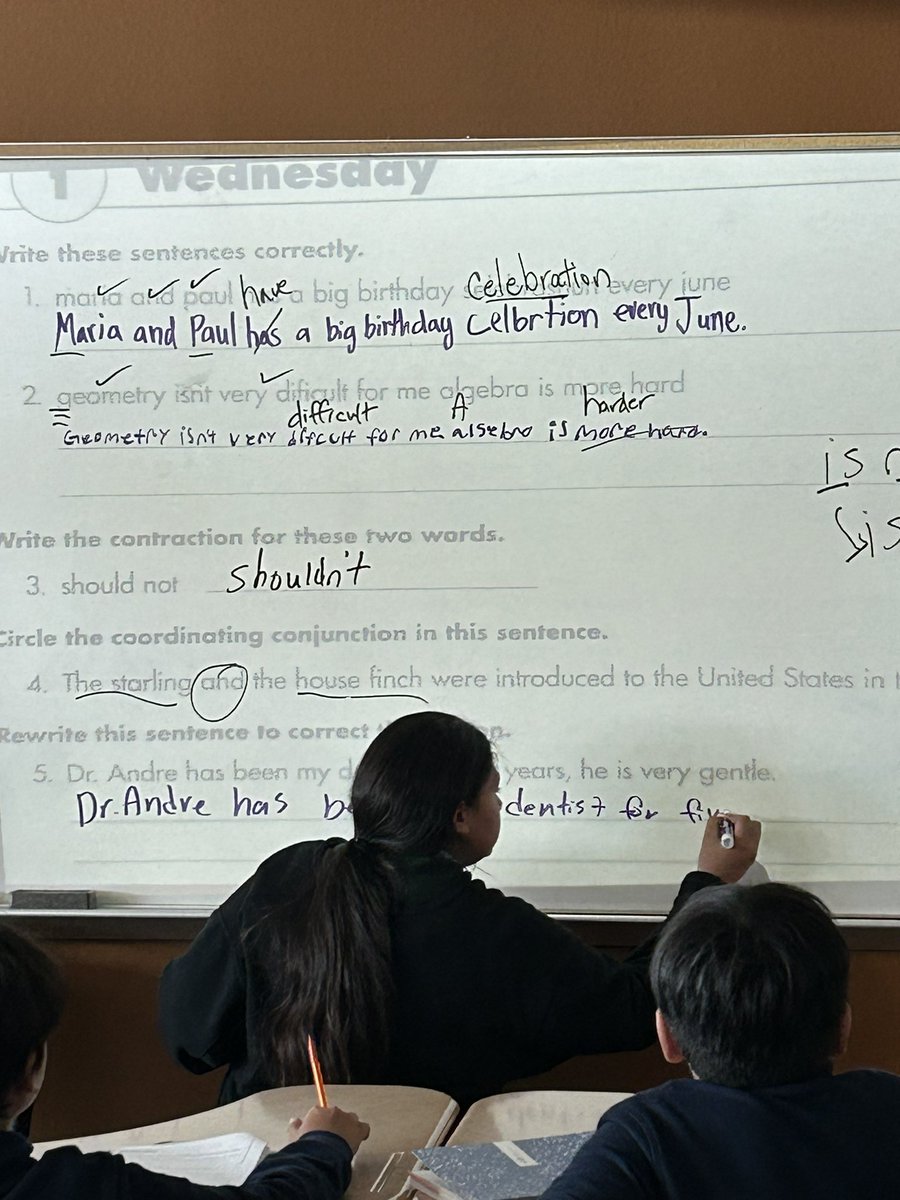 1 Wednesday
Write these sentences correctly.
have celebration
1. maria and paul a big birthday every june
Maria and Paul has a big birthday Celbrtion every June.
2. geometry isnt very dificult for me algebra is more hard
difficult A harder
Geometry isnt very diffcult for me algebra is more hard.
is
Write the contraction for these two words.
3. should not shouldn't
Circle the coordinating conjunction in this sentence.
4. The starling and the house finch were introduced to the United States in
Rewrite this sentence to correct
5. Dr. Andre has been my years, he is very gentle.
Dr. Andre has dentist for